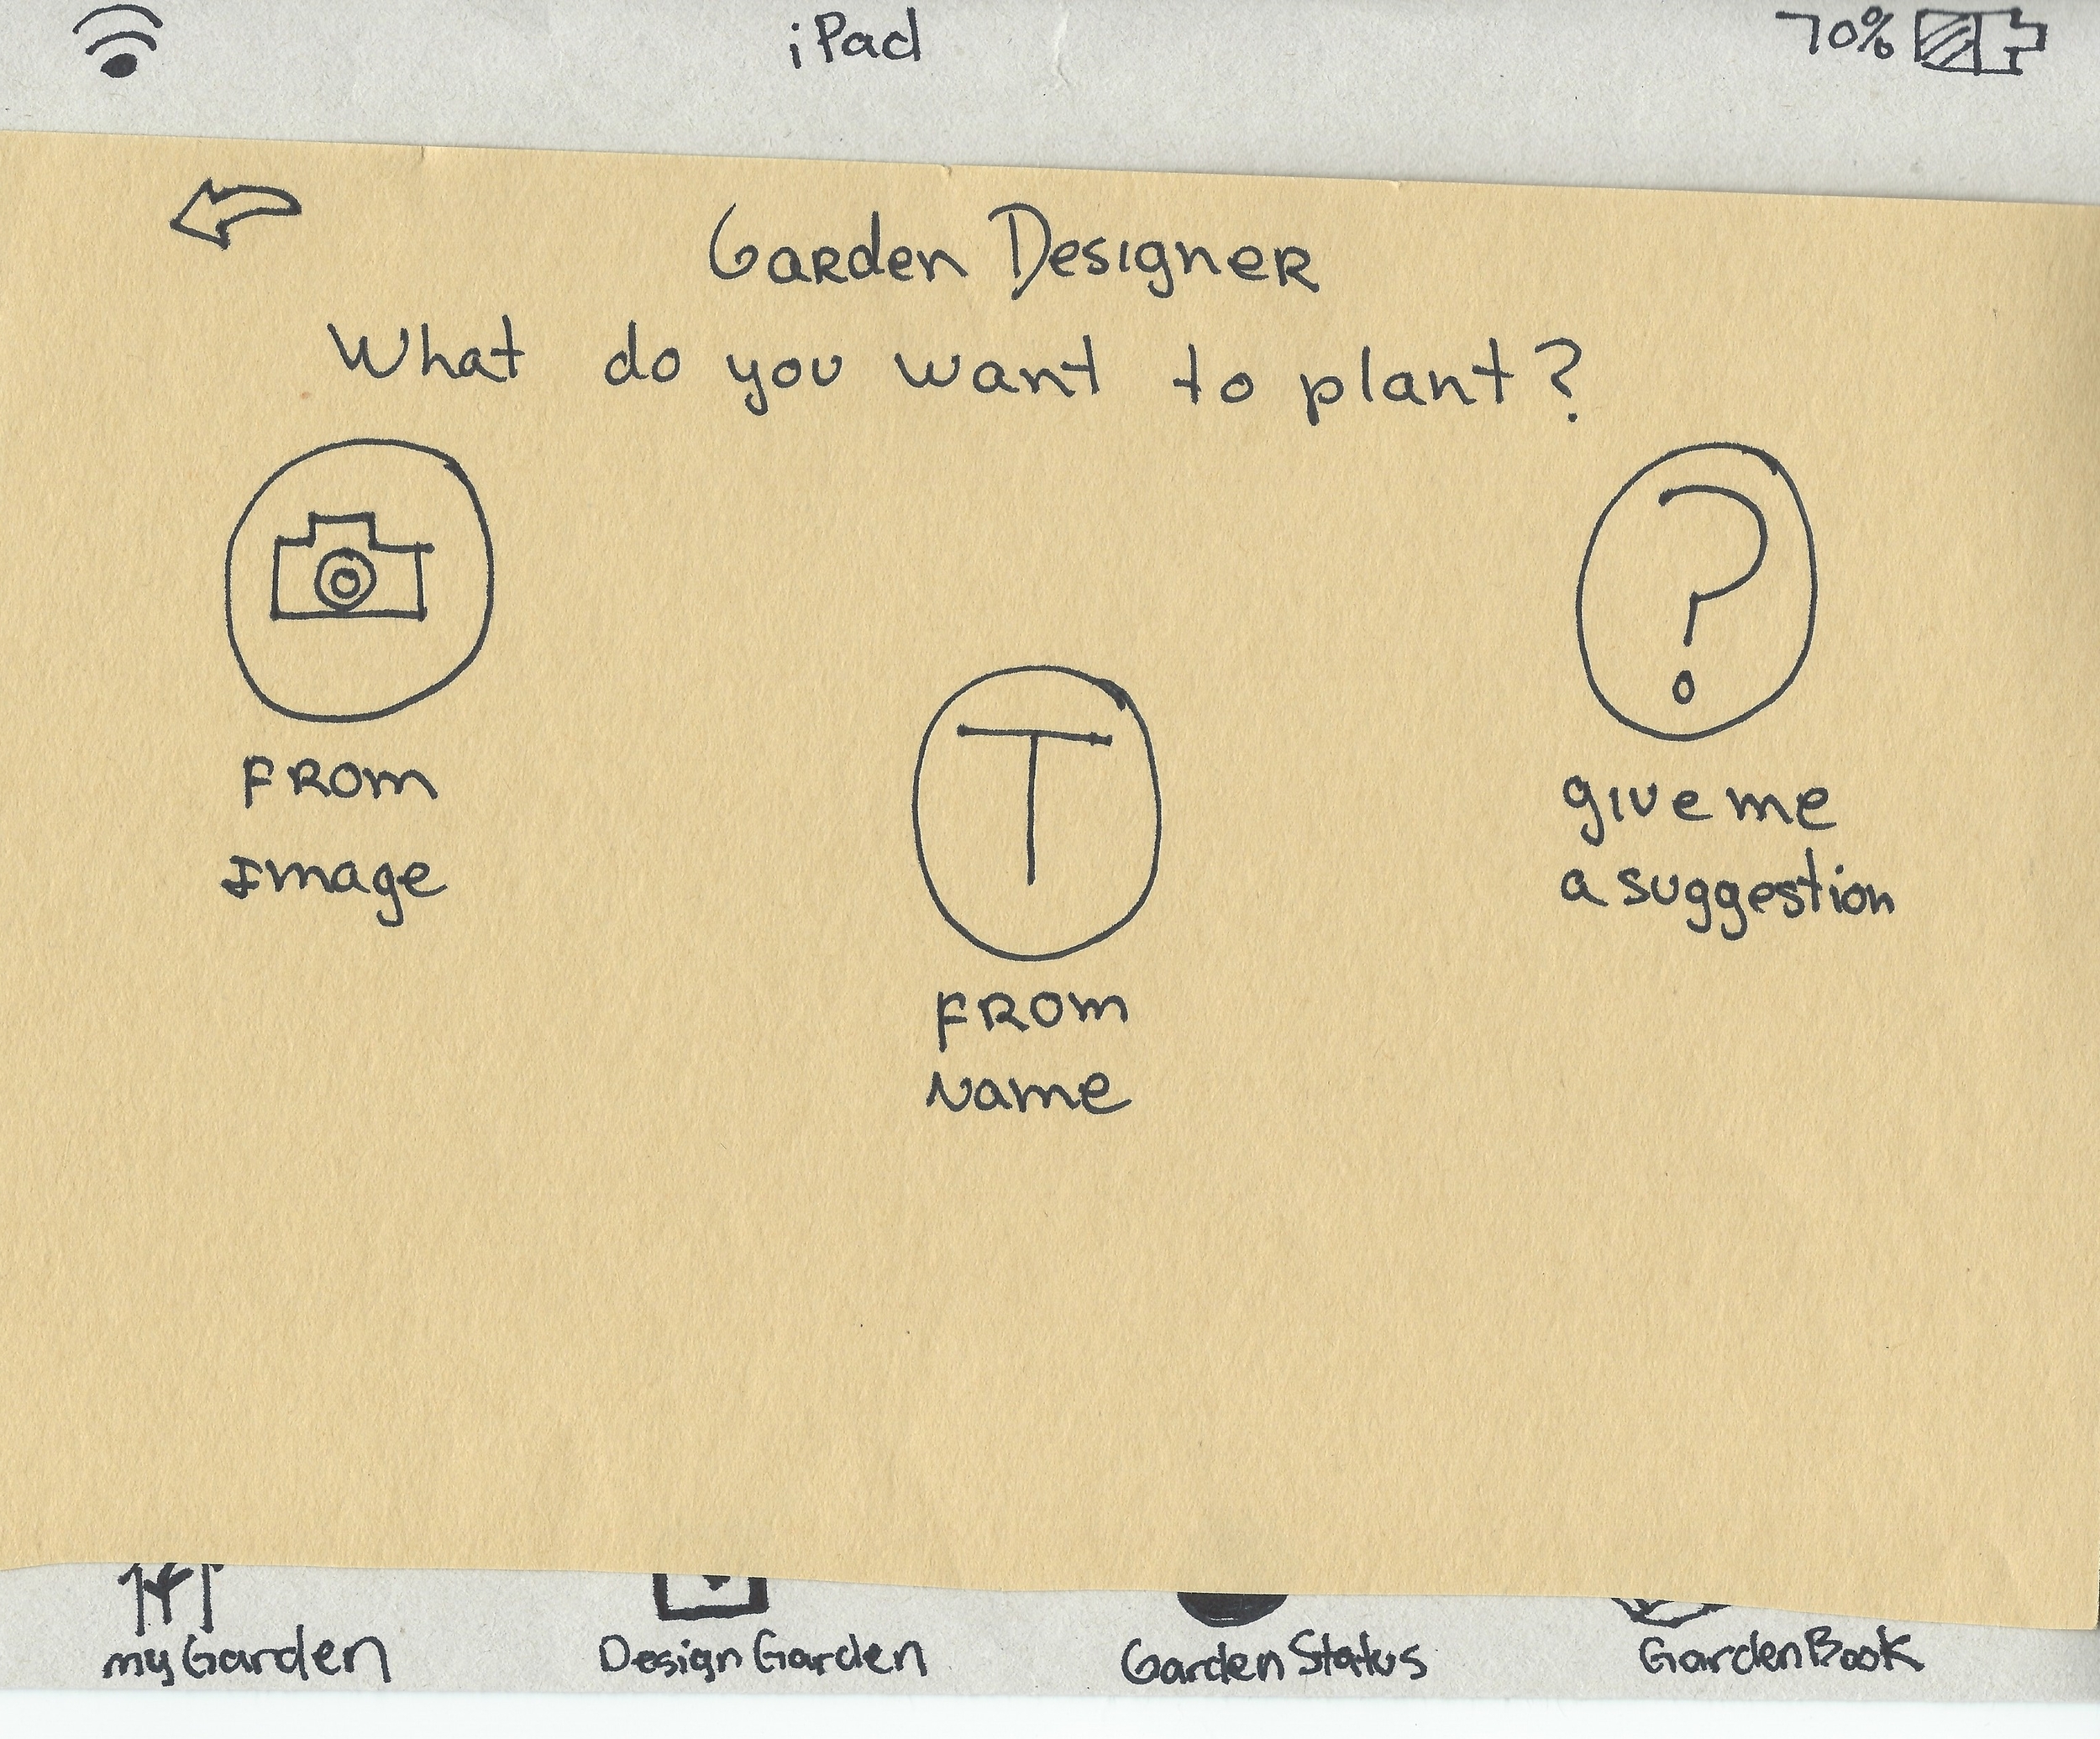 iPad 70%
Garden Designer
What do you want to plant?
?
From
Image
give me
a suggestion
T
From
Name
my Garden Design Garden Garden Status Garden Book